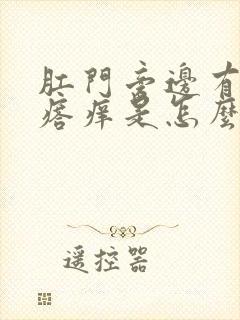 肛門旁邊有
瘩痒是怎麼
遥控器